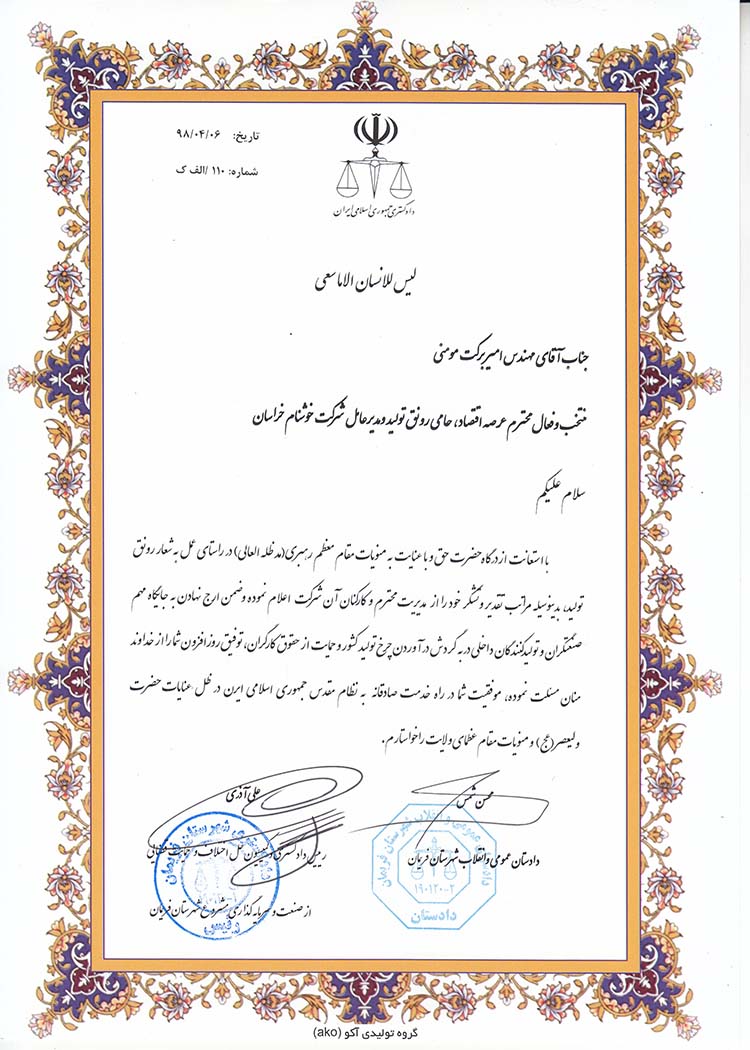 تاریخ: ۹۸/۰۴/۰۶
شماره: ۱۱۰/الف ک
دادگستری جمهوری اسلامی ایران
لیس للانسان الا ما سعی
جناب آقای مهندس امیر برکت مومنی
منتخب و فعال محترم عرصه اقتصاد، حامی رونق تولید و مدیرعامل شرکت خوشنام خراسان
سلام علیکم
با استعانت از درگاه حضرت حق و با عنایت به منویات مقام معظم رهبری(مدظله العالی) در راستای عمل به شعار رونق
تولید، بدینوسیله مراتب تقدیر و تشکر خود را از مدیریت محترم و کارکنان آن شرکت اعلام نموده و ضمن ارج نهادن به جایگاه مهم
صنعتگران و تولیدکنندگان داخلی در به گردش درآوردن چرخ تولید کشور و حمایت از حقوق کارگران، توفیق روزافزون شما را از خداوند
منان مسئلت نموده، موفقیت شما در راه خدمت صادقانه به نظام مقدس جمهوری اسلامی ایرن در ظل عنایات حضرت
ولیعصر(عج) و منویات مقام عظمای ولایت را خواستارم.
محسن شمس
علی آذری
دادستان عمومی و انقلاب شهرستان فریمان
رییس دادگستری و کمیسیون حل اختلاف و حمایت قضایی
از صنعت و سرمایه گذاری مشروع شهرستان فریمان
دادستان
۱۹۰۱۲۰۰۲
گروه تولیدی آکو (ako)